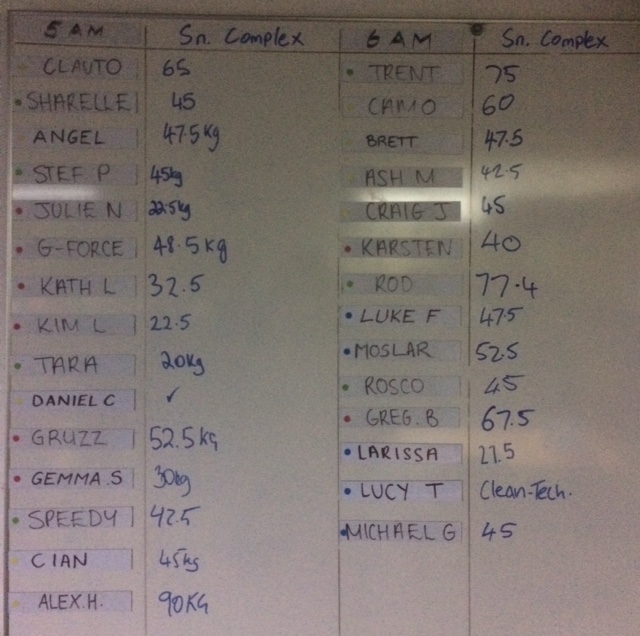 5 AM Sn. Complex 6 AM Sn. Complex
CLAUTO 65 TRENT 75
SHARELLE 45 CAMO 60
ANGEL 47.5kg BRETT 47.5
STEF P 45kg ASH M 42.5
JULIE N 22.5kg CRAIG J 45
G-FORCE 48.5kg KARSTEN 40
KATH L 32.5 ROD 77.4
KIM L 22.5 LUKE F 47.5
TARA 20kg MOSLAR 52.5
DANIEL C ✓ ROSCO 45
GRUZZ 52.5kg GREG.B 67.5
GEMMA.S 30kg LARISSA
SPEEDY 42.5 LUCY T Clean-Tech.
CIAN 45kg MICHAEL G 45
ALEX.H. 90KG